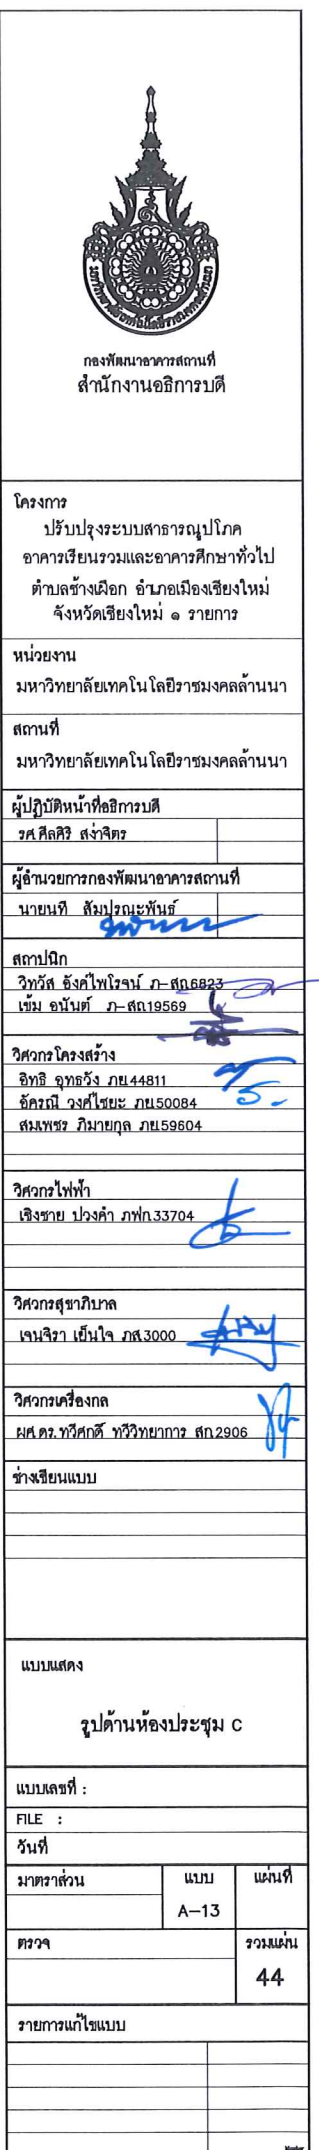 มหาวิทยาลัยเทคโนโลยีราชมงคลล้านนา
กองพัฒนาอาคารสถานที่
สำนักงานอธิการบดี
โครงการ
ปรับปรุงระบบสาธารณูปโภค
อาคารเรียนรวมและอาคารศึกษาทั่วไป
ตำบลช้างเผือก อำเภอเมืองเชียงใหม่
จังหวัดเชียงใหม่ ๑ รายการ
หน่วยงาน
มหาวิทยาลัยเทคโนโลยีราชมงคลล้านนา
สถานที่
มหาวิทยาลัยเทคโนโลยีราชมงคลล้านนา
ผู้ปฏิบัติหน้าที่อธิการบดี
รศ.ศีลศิริ สง่าจิตร
ผู้อำนวยการกองพัฒนาอาคารสถานที่
นายนที สัมปุรณะพันธ์
สถาปนิก
วิทวัส อังค์ไพโรจน์ ภ-สถ.6823
เข้ม อนันต์ ภ-สถ19569
วิศวกรโครงสร้าง
อิทธิ อุทธวัง ภย.44811
อัครณี วงศ์ไชยะ ภย.50084
สมเพชร ภิมายกุล ภย.59604
วิศวกรไฟฟ้า
เชิงชาย ปวงคำ ภฟก.33704
วิศวกรสุขาภิบาล
เจนจิรา เย็นใจ ภส.3000
วิศวกรเครื่องกล
ผศ.ดร.ทวีศกดิ์ ทวีวิทยาการ สก.2906
ช่างเขียนแบบ
แบบแสดง
รูปด้านห้องประชุม C
แบบเลขที่ :
FILE :
วันที่
มาตราส่วน แบบ แผ่นที่
A-13
ตรวจ รวมแผ่น
44
รายการแก้ไขแบบ